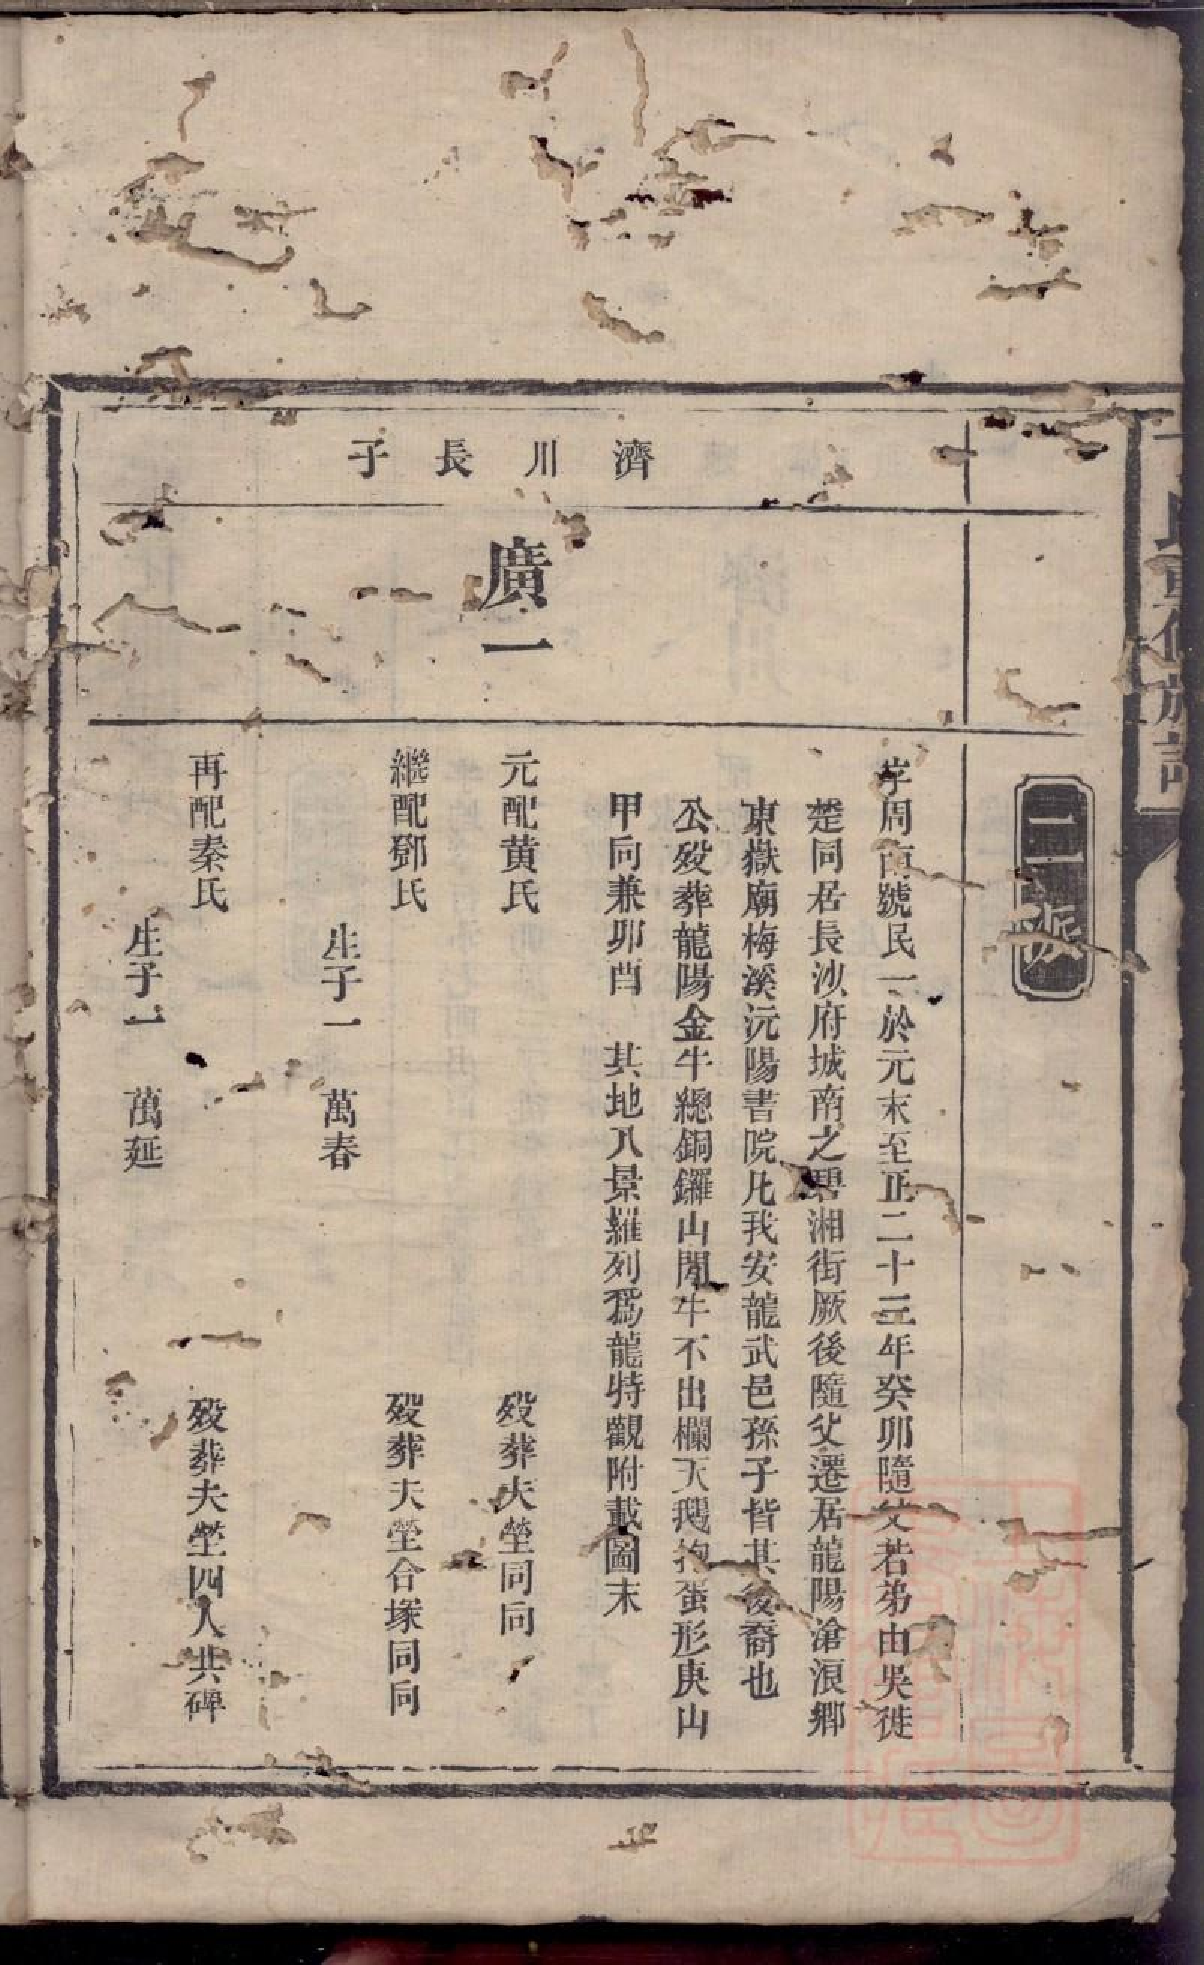 二派
濟川長子
廣一
字周南號民一於元末至正二十三年癸卯隨父若弟由吳徙
楚同居長沙府城南之碧湘街厥後隨父遷居龍陽滄浪鄉
東嶽廟梅溪沅陽書院凡我安龍武邑孫子皆其後裔也
公歿葬龍陽金牛總銅鑼山閒牛不出欄天鵝抱蛋形庚山
甲向兼卯酉 其地八景羅列爲龍特觀附載圖末
元配黃氏 歿葬夫塋同向
繼配鄧氏 歿葬夫塋合塚同向
生子一 萬春
再配秦氏 歿葬夫塋四人共碑
生子一 萬延